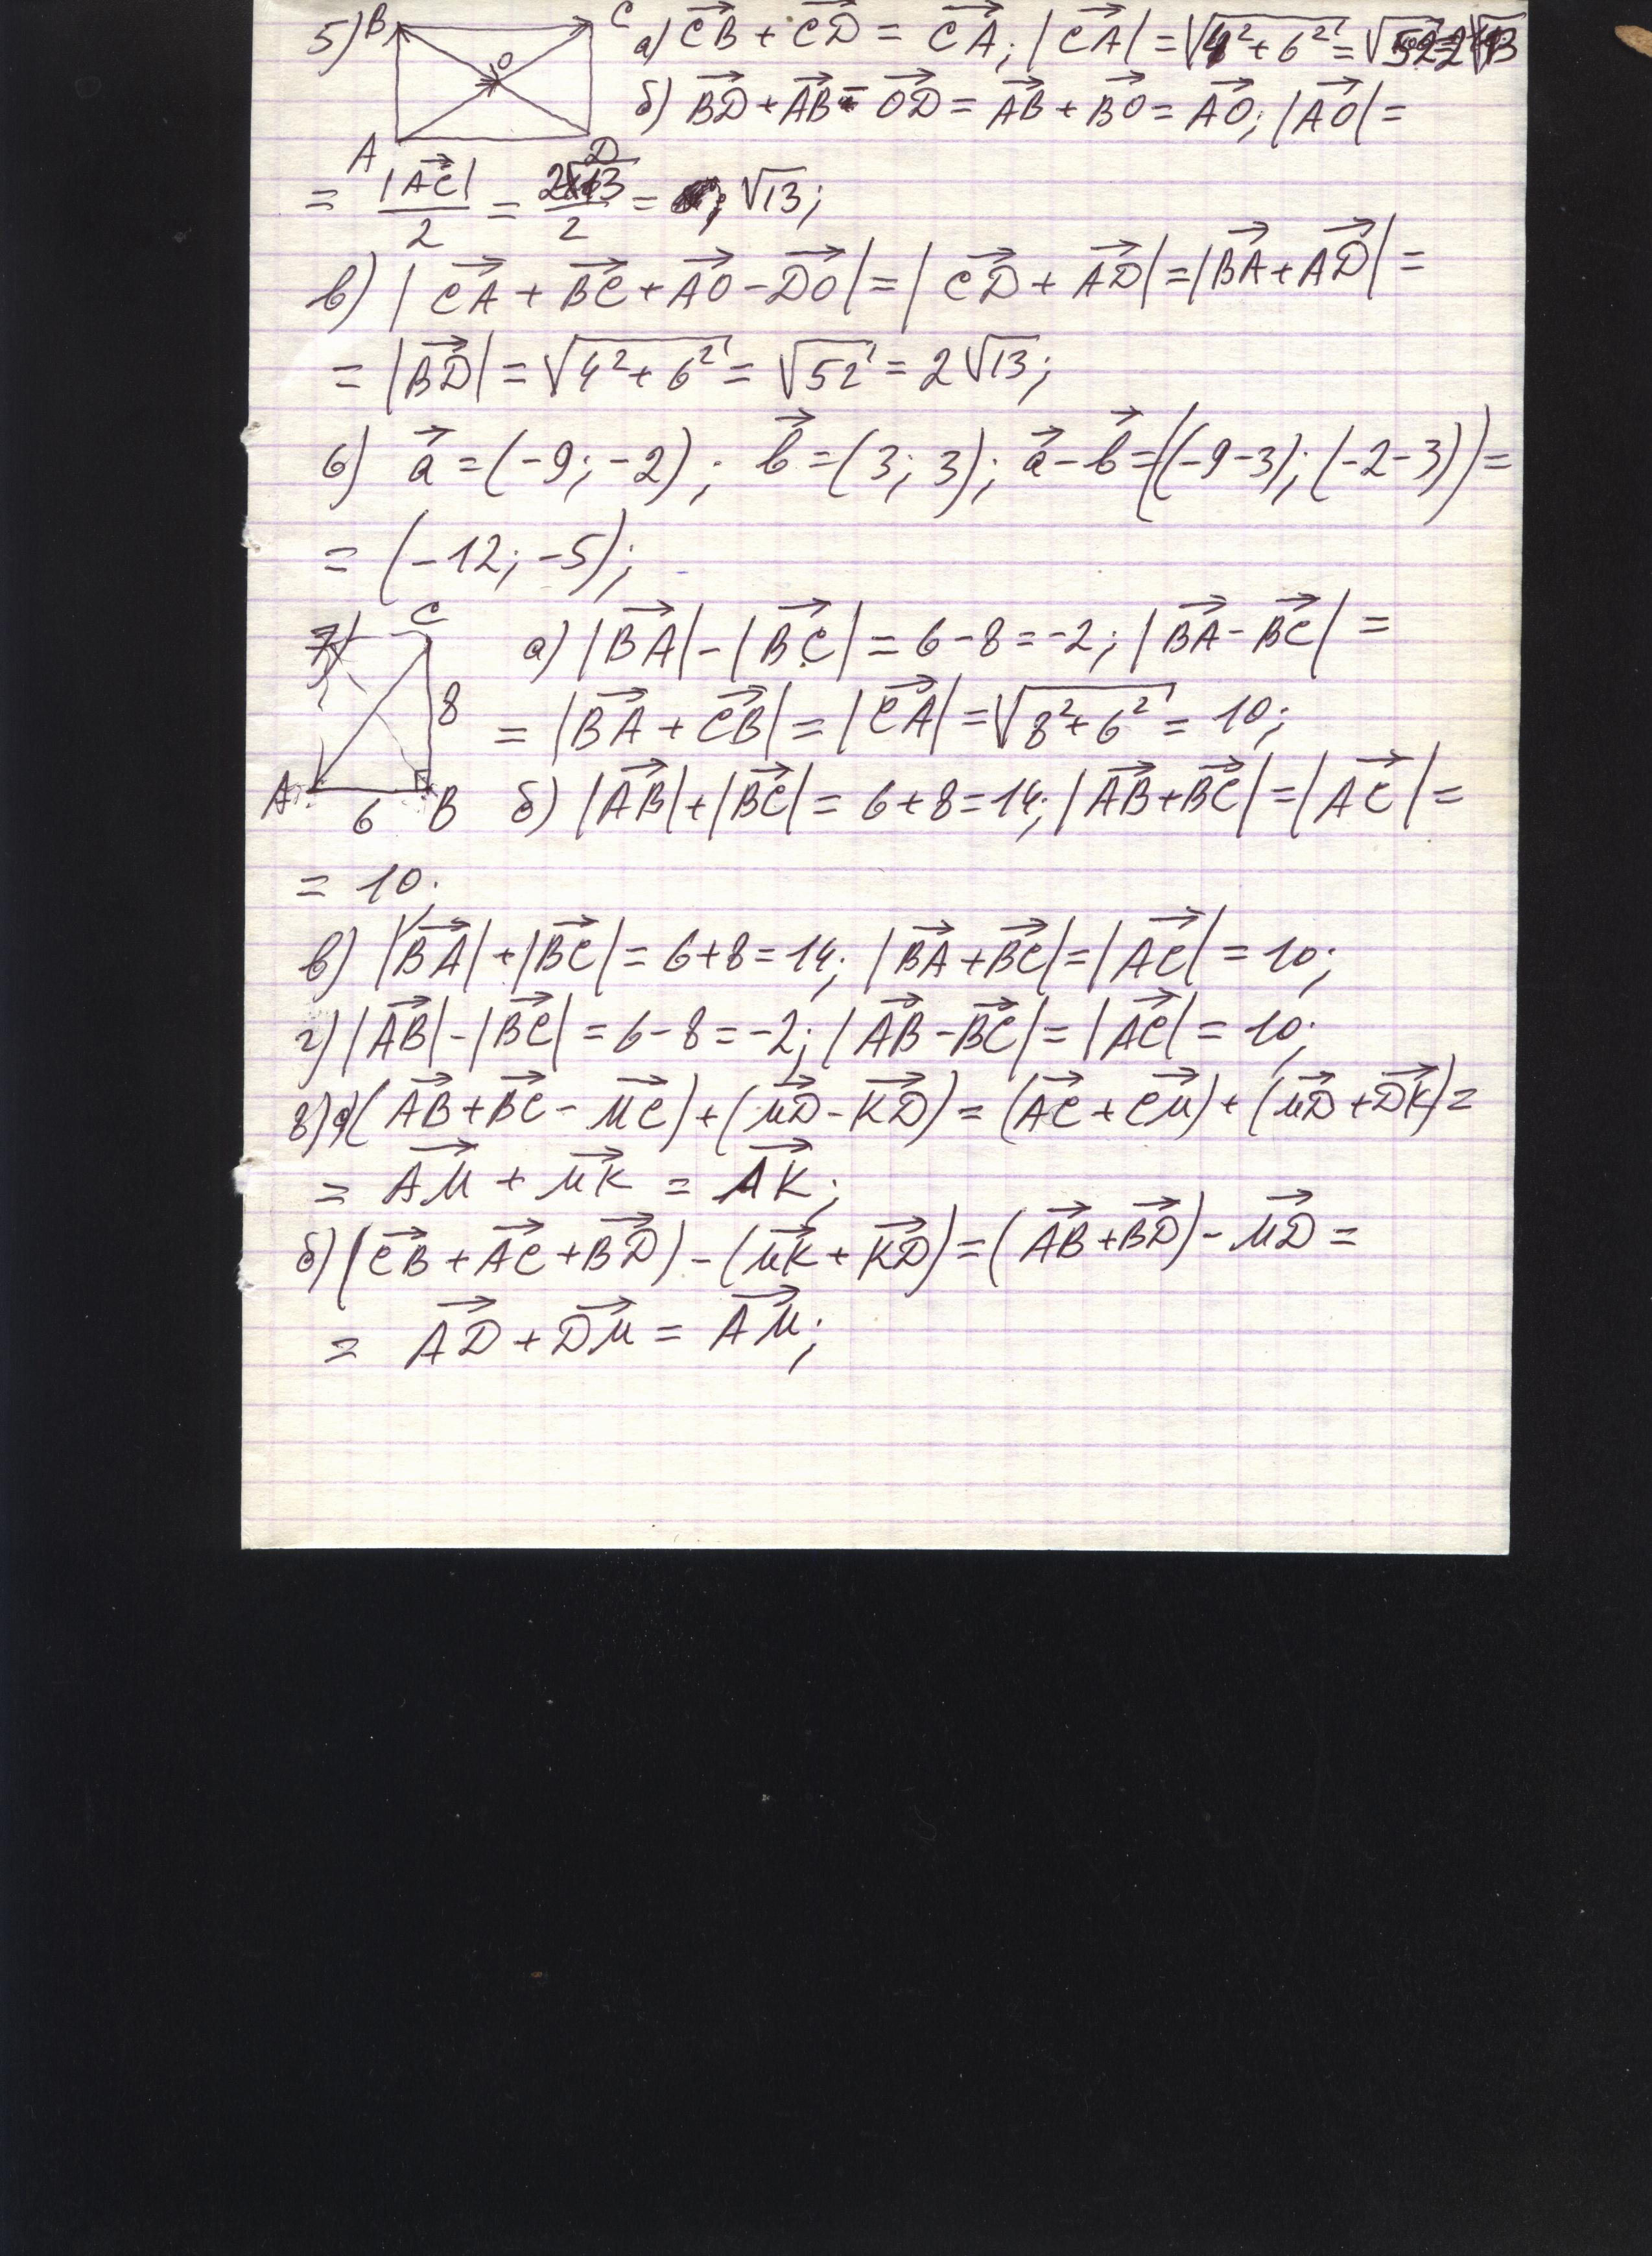 5) B C a) CB + CD = CA; |CA| = √4²+6² = √52 = 2√13
O
б) BD + AB - OD = AB + BO = AO; |AO| =
A D
= |AC|/2 = 2√13/2 = √13;
в) |CA + BC + AO - DO| = |CD + AD| = |BA + AD| =
= |BD| = √4²+6² = √52 = 2√13;
6) a = (-9; -2); b = (3; 3); a - b = ((-9-3); (-2-3)) =
= (-12; -5);
7) C a) |BA| - |BC| = 6 - 8 = -2; |BA - BC| =
8 = |BA + CB| = |CA| = √8²+6² = 10;
A 6 B б) |AB| + |BC| = 6 + 8 = 14; |AB + BC| = |AC| =
= 10;
в) |BA| + |BC| = 6 + 8 = 14; |BA + BC| = |AC| = 10;
г) |AB| - |BC| = 6 - 8 = -2; |AB - BC| = |AC| = 10;
8) a) (AB + BC - MC) + (MD - KD) = (AC + CM) + (MD + DK) =
= AM + MK = AK;
б) (CB + AC + BD) - (MK + KD) = (AB + BD) - MD =
= AD + DM = AM;